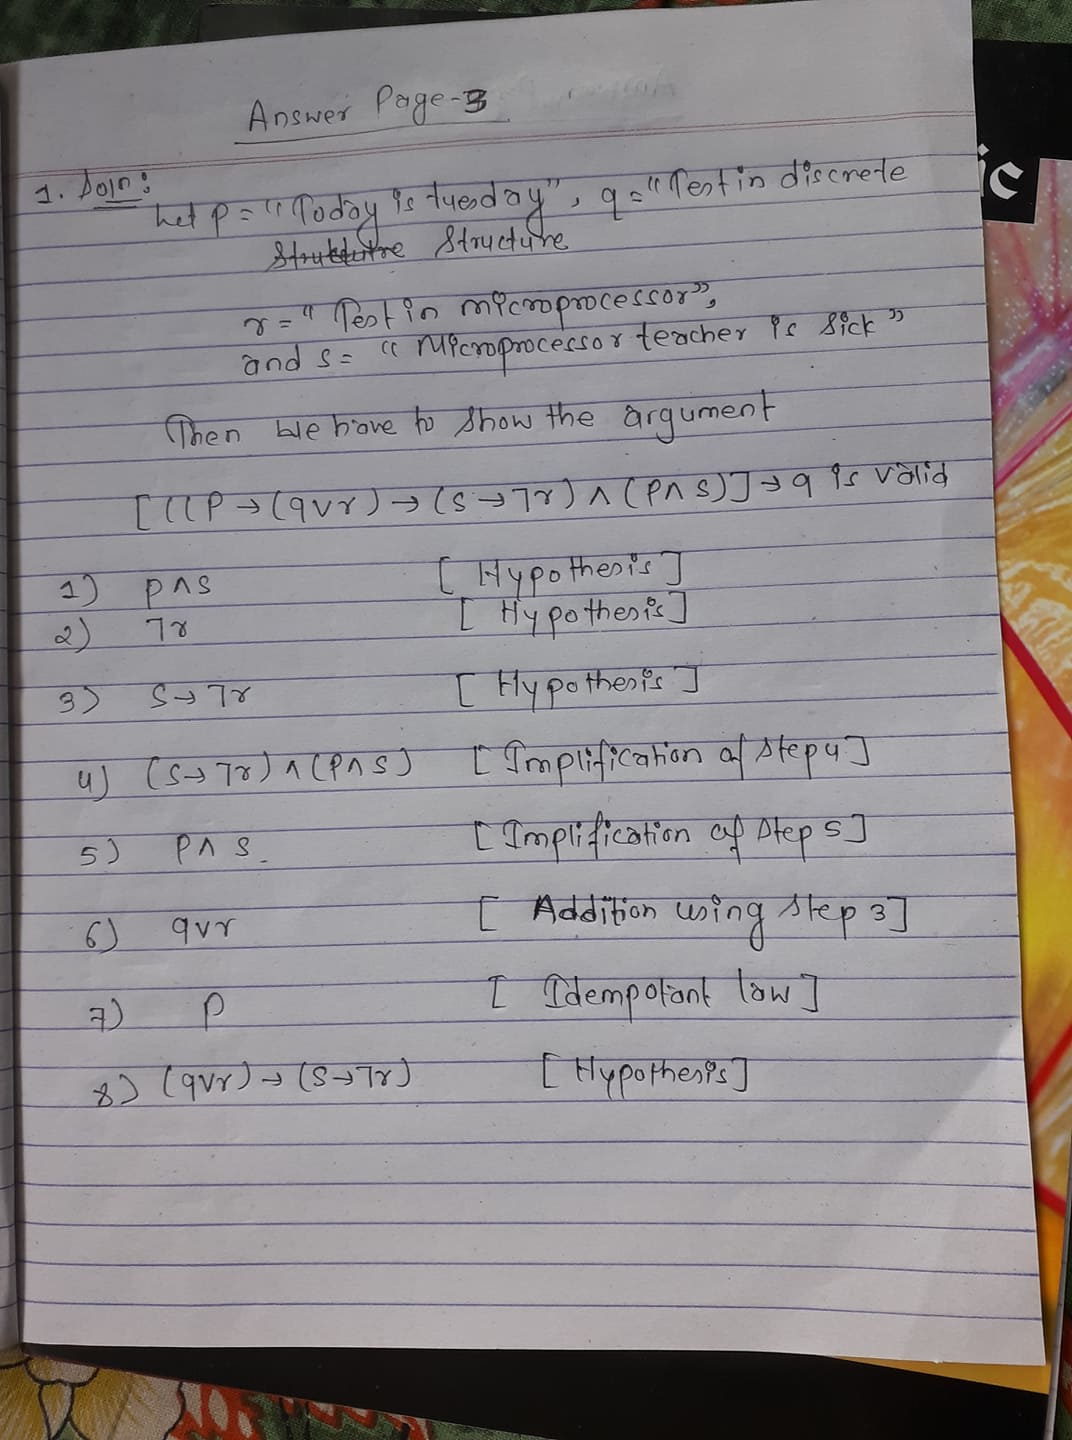 Answer Page-3
1. Soln:
Let p = "Today is tuesday", q = "Test in discrete
Structure
r = " Test in microprocessor",
and s = " Microprocessor teacher is sick "
Then we have to show the argument
[((P → (q∨r) → (s → ¬r) ∧ (p∧s)] → q is valid
1) p∧s [ Hypothesis ]
2) ¬r [ Hypothesis ]
3) s → ¬r [ Hypothesis ]
4) (s → ¬r) ∧ (p∧s) [ Implification of step 4 ]
5) p∧s. [ Implification of step 5 ]
6) q∨r [ Addition using step 3 ]
7) p [ Idempotant law ]
8) (q∨r) → (s → ¬r) [ Hypothesis ]
ic